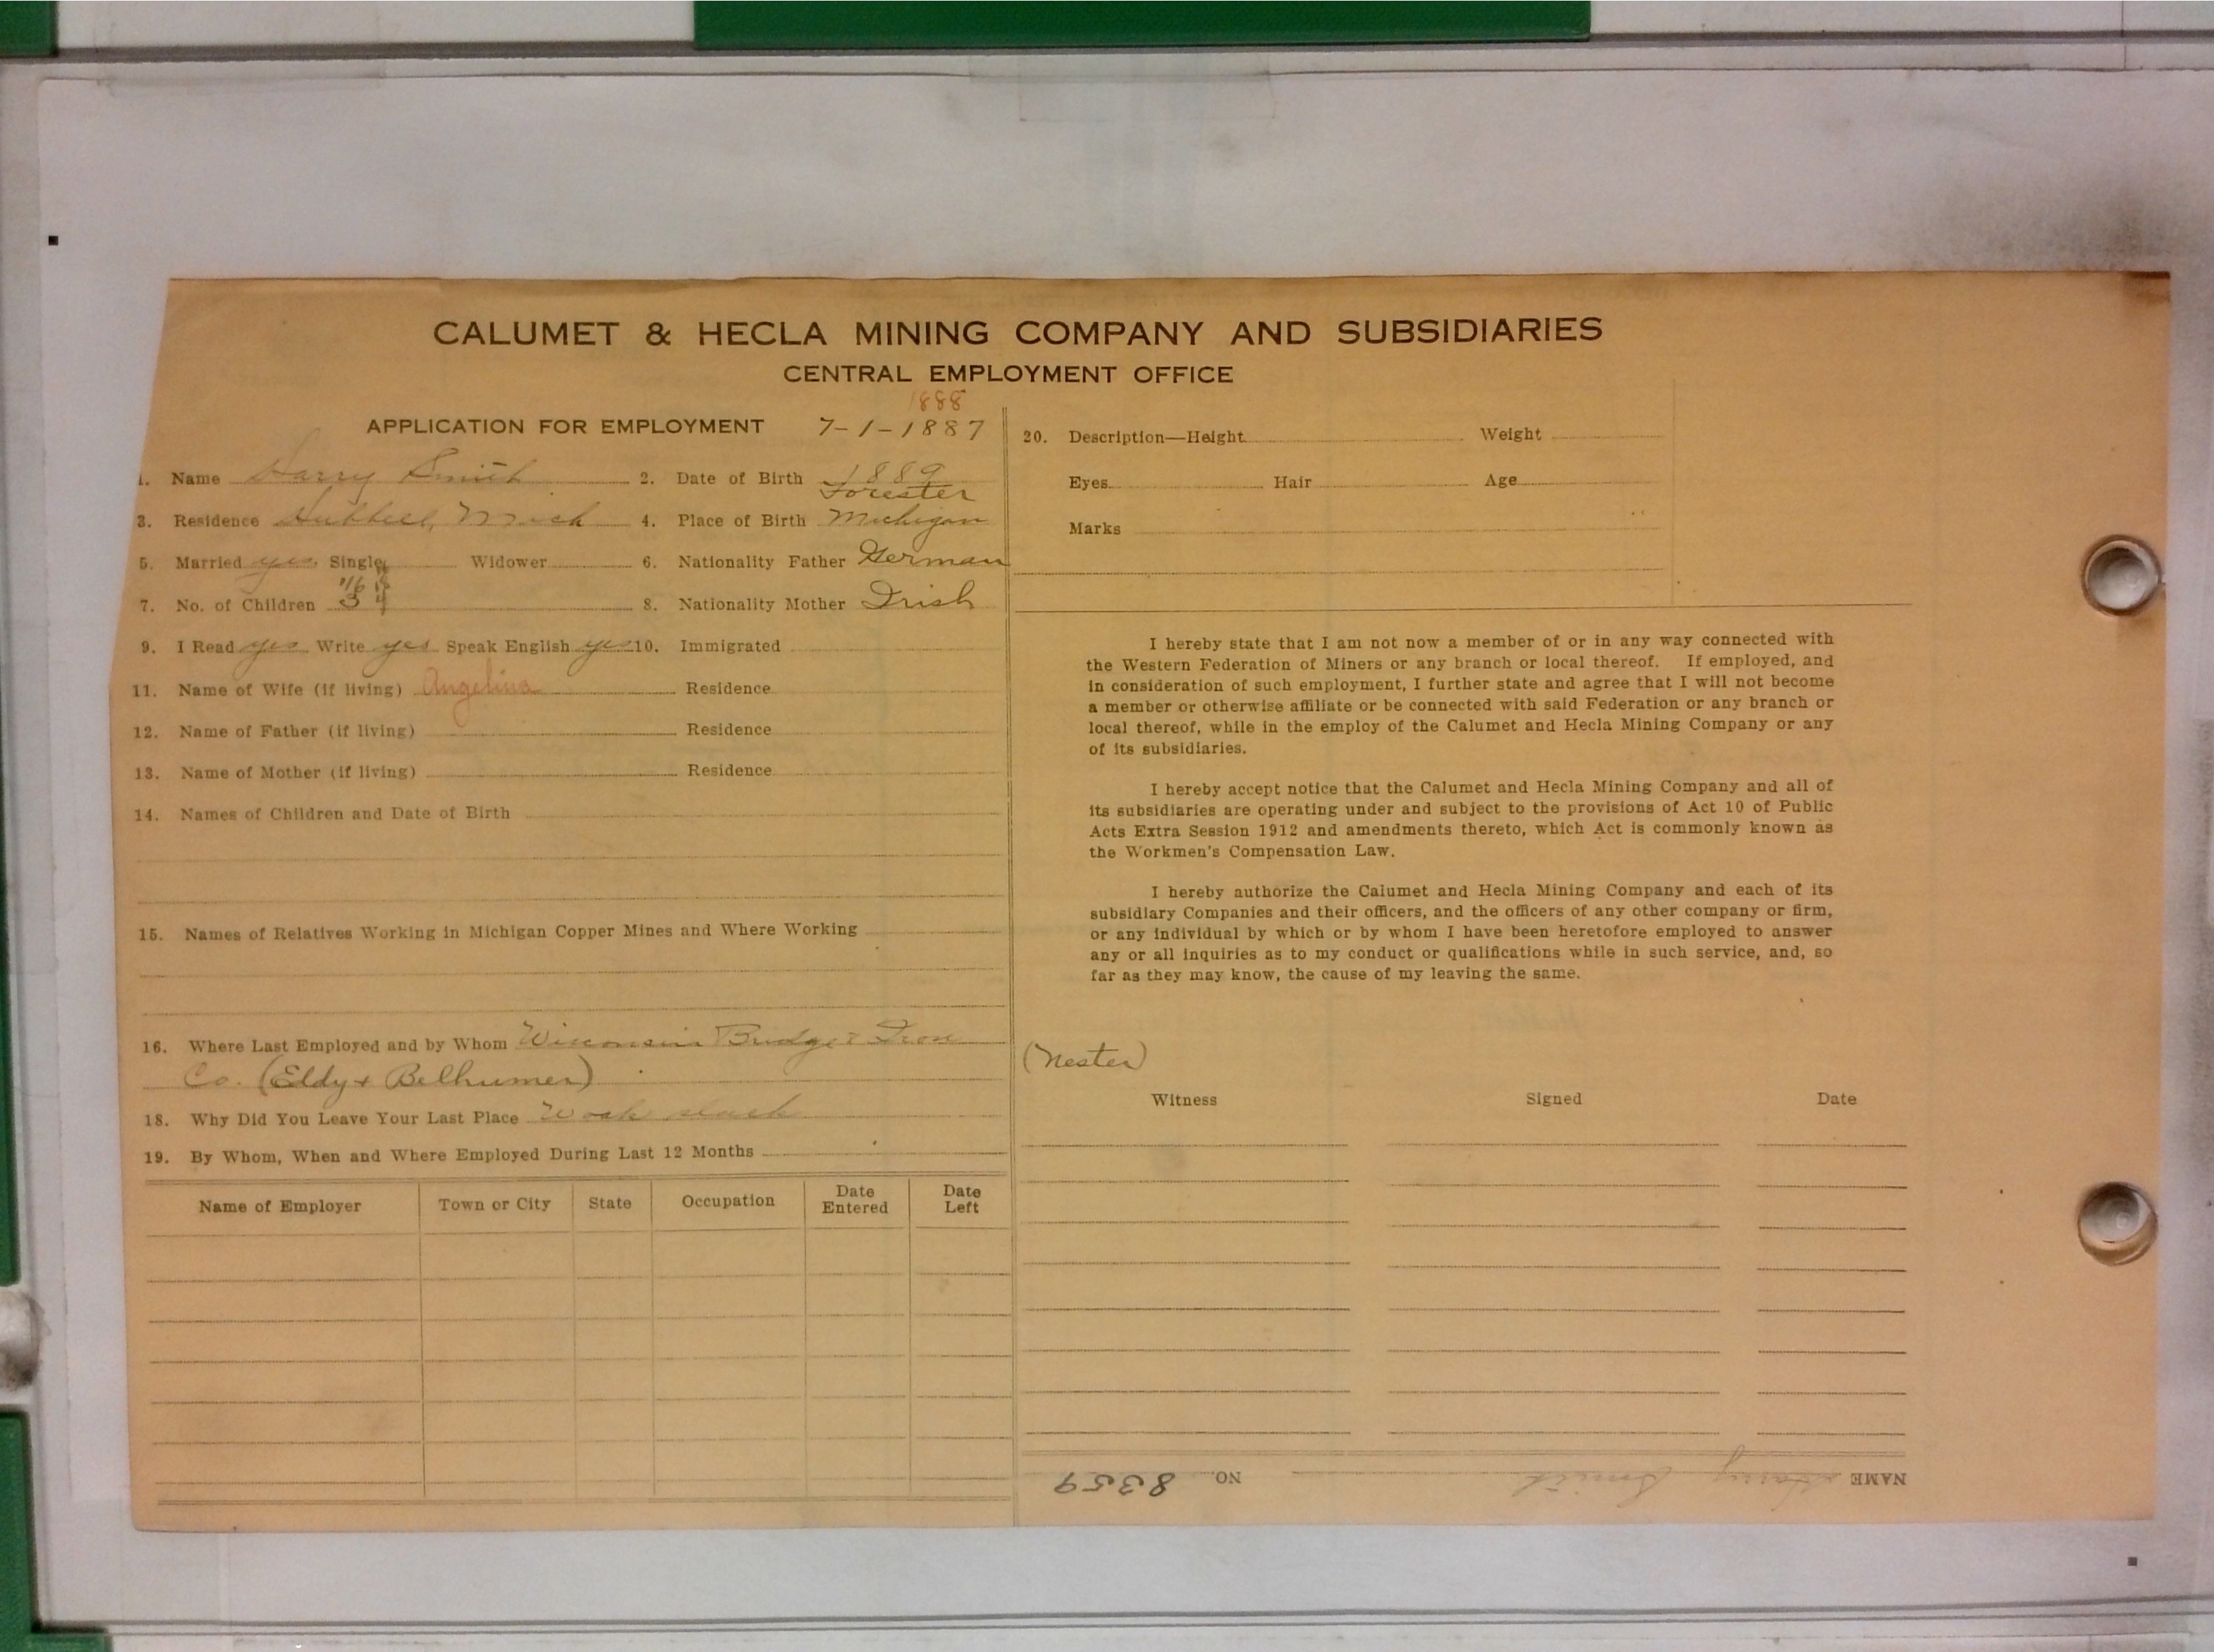 CALUMET & HECLA MINING COMPANY AND SUBSIDIARIES
CENTRAL EMPLOYMENT OFFICE
1888
APPLICATION FOR EMPLOYMENT 7-1-1887
1. Name Harry Smith 2. Date of Birth 1889
Forester
3. Residence Hubbell, Mich 4. Place of Birth Michigan
5. Married yes Single Widower 6. Nationality Father German
7. No. of Children 3 4 8. Nationality Mother Irish
9. I Read yes Write yes Speak English yes 10. Immigrated
11. Name of Wife (if living) Angelina Residence
12. Name of Father (if living) Residence
13. Name of Mother (if living) Residence
14. Names of Children and Date of Birth
15. Names of Relatives Working in Michigan Copper Mines and Where Working
16. Where Last Employed and by Whom Wisconsin Bridge & Iron
Co. (Eldy & Belhumer)
18. Why Did You Leave Your Last Place Work slack
19. By Whom, When and Where Employed During Last 12 Months
Name of Employer Town or City State Occupation Date Entered Date Left
20. Description—Height Weight
Eyes Hair Age
Marks
I hereby state that I am not now a member of or in any way connected with
the Western Federation of Miners or any branch or local thereof. If employed, and
in consideration of such employment, I further state and agree that I will not become
a member or otherwise affiliate or be connected with said Federation or any branch or
local thereof, while in the employ of the Calumet and Hecla Mining Company or any
of its subsidiaries.
I hereby accept notice that the Calumet and Hecla Mining Company and all of
its subsidiaries are operating under and subject to the provisions of Act 10 of Public
Acts Extra Session 1912 and amendments thereto, which Act is commonly known as
the Workmen's Compensation Law.
I hereby authorize the Calumet and Hecla Mining Company and each of its
subsidiary Companies and their officers, and the officers of any other company or firm,
or any individual by which or by whom I have been heretofore employed to answer
any or all inquiries as to my conduct or qualifications while in such service, and, so
far as they may know, the cause of my leaving the same.
(Nester)
Witness Signed Date
NAME Harry Smith NO. 8359